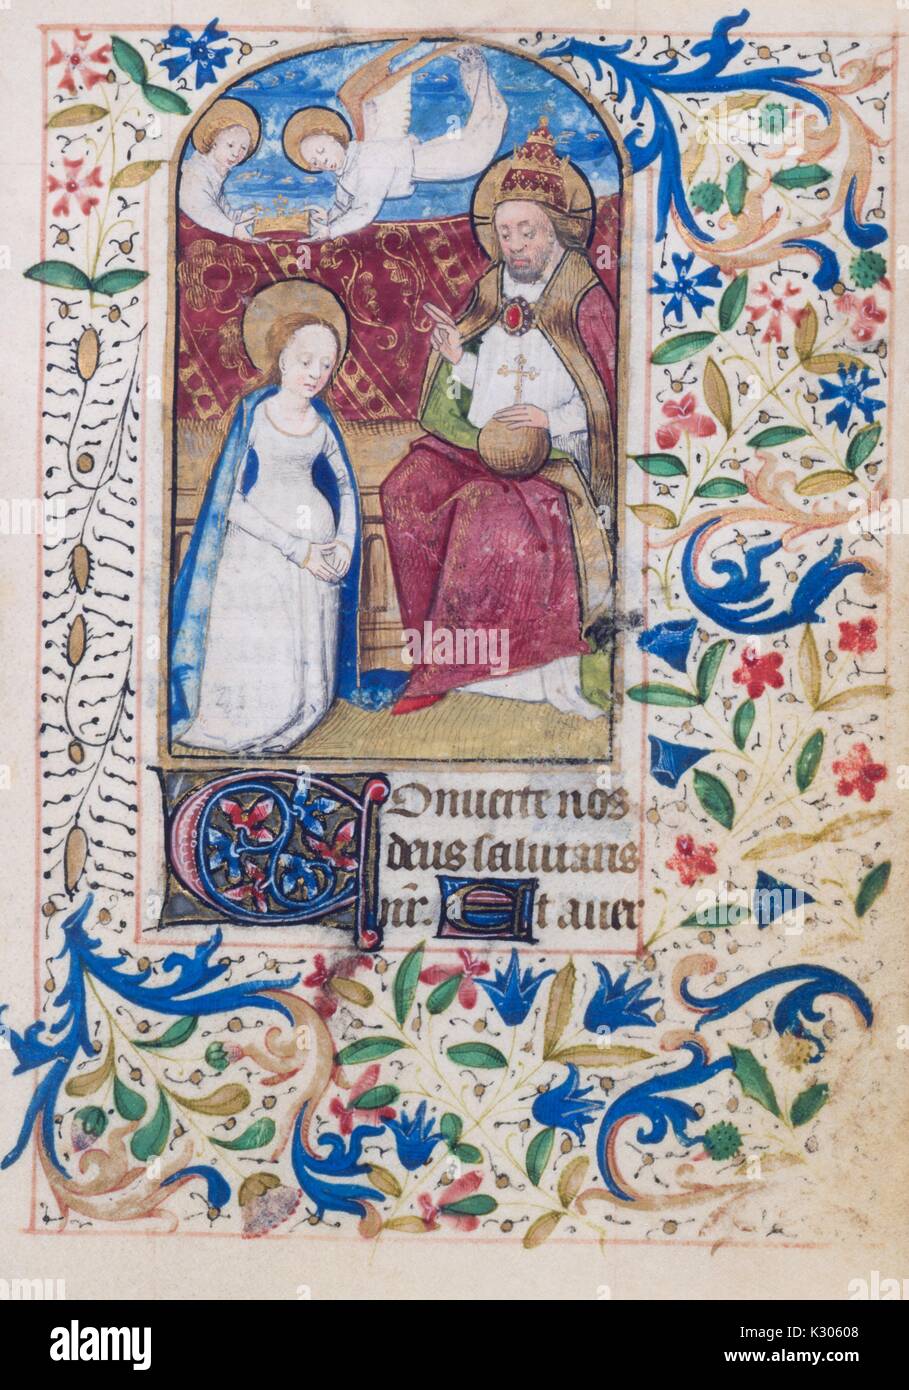 Conuerte nos
deus salutaris
nr̄. Et auer
alamy stock photo
alamy
Image ID: K30608
www.alamy.com